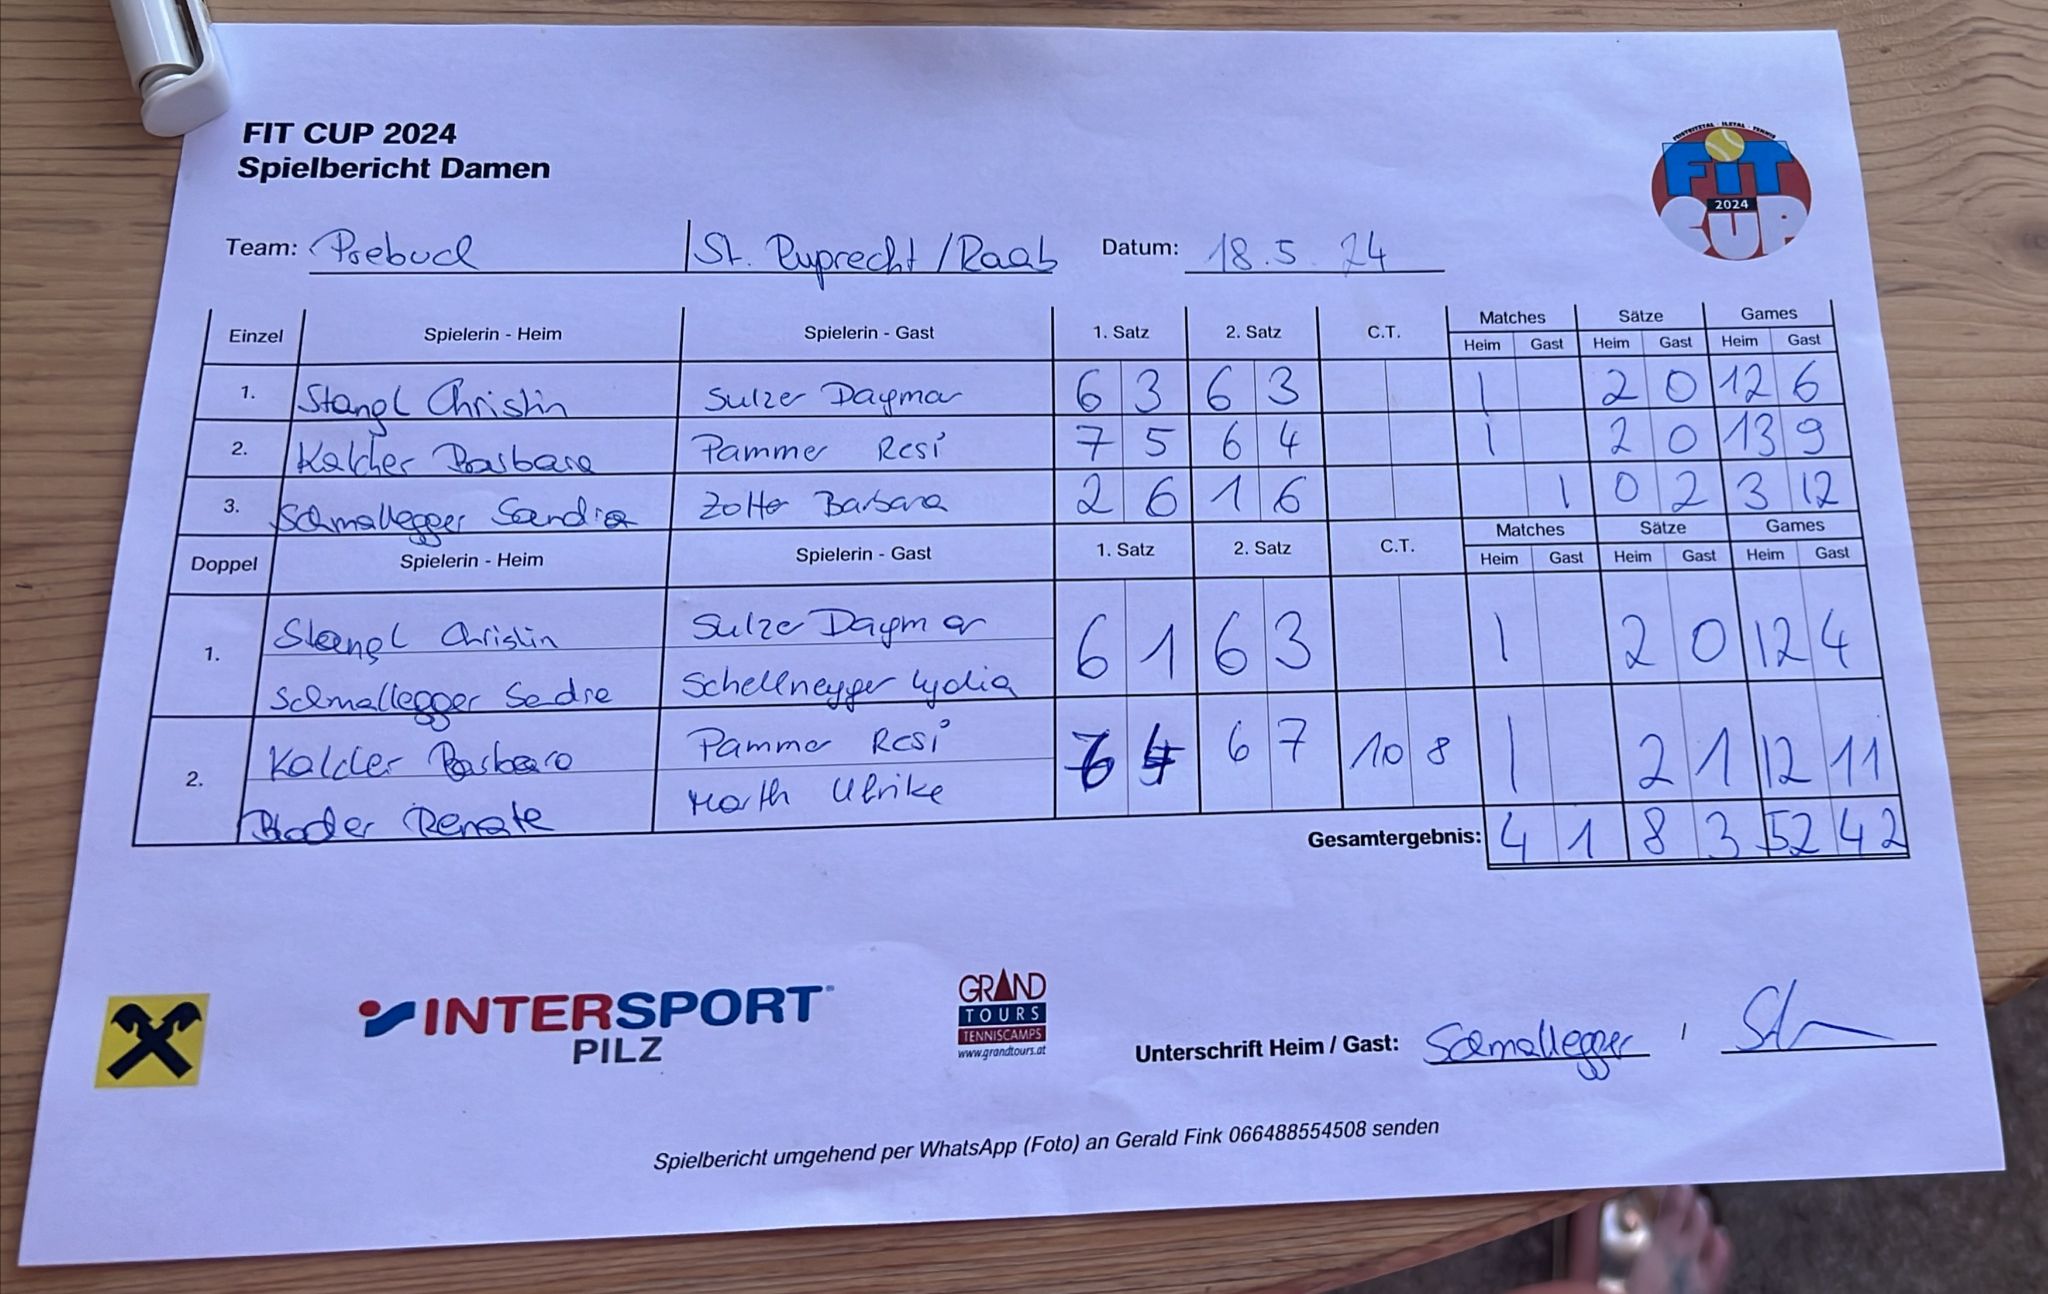 FIT CUP 2024
Spielbericht Damen
FEISTRITZTAL - ILZTAL - TENNIS
FiT
2024
CUP
Team: Prebuch | St. Ruprecht / Raab Datum: 18.5.24
Einzel Spielerin - Heim Spielerin - Gast 1. Satz 2. Satz C.T. Matches Sätze Games
Heim Gast Heim Gast Heim Gast
1. Stangl Christin Sulzer Dagmar 6 3 6 3 1 2 0 12 6
2. Kalcher Barbara Pammer Resi 7 5 6 4 1 2 0 13 9
3. Schmallegger Sandra Zotter Barbara 2 6 1 6 1 0 2 3 12
Doppel Spielerin - Heim Spielerin - Gast 1. Satz 2. Satz C.T. Matches Sätze Games
Heim Gast Heim Gast Heim Gast
1. Stangl Christin Sulzer Dagmar 6 1 6 3 1 2 0 12 4
Schmallegger Sandra Schellnegger Lydia
2. Kalcher Barbara Pammer Resi 6 4 6 7 10 8 1 2 1 12 11
Renate Marth Ulrike
Gesamtergebnis: 4 1 8 3 52 42
INTERSPORT
PILZ
GRAND
TOURS
TENNISCAMPS
www.grandtours.at
Unterschrift Heim / Gast: Schmallegger /
Spielbericht umgehend per WhatsApp (Foto) an Gerald Fink 066488554508 senden